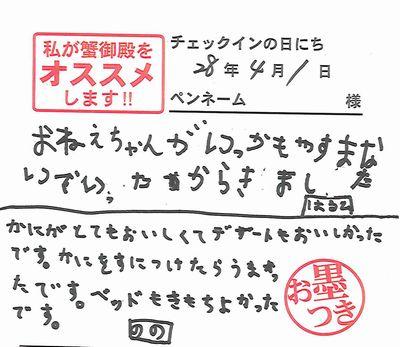 私が蟹御殿を
オススメ
します!!
チェックインの日にち
28年4月1日
ペンネーム 様
おねえちゃんがいっかもやすまな
いでいったからきました
はるこ
かにがとてもおいしくてデザートもおいしかった
です。かにをすにつけたらうまかっ
たです。ベッドもきもちよかった
です。
のの
お墨つき